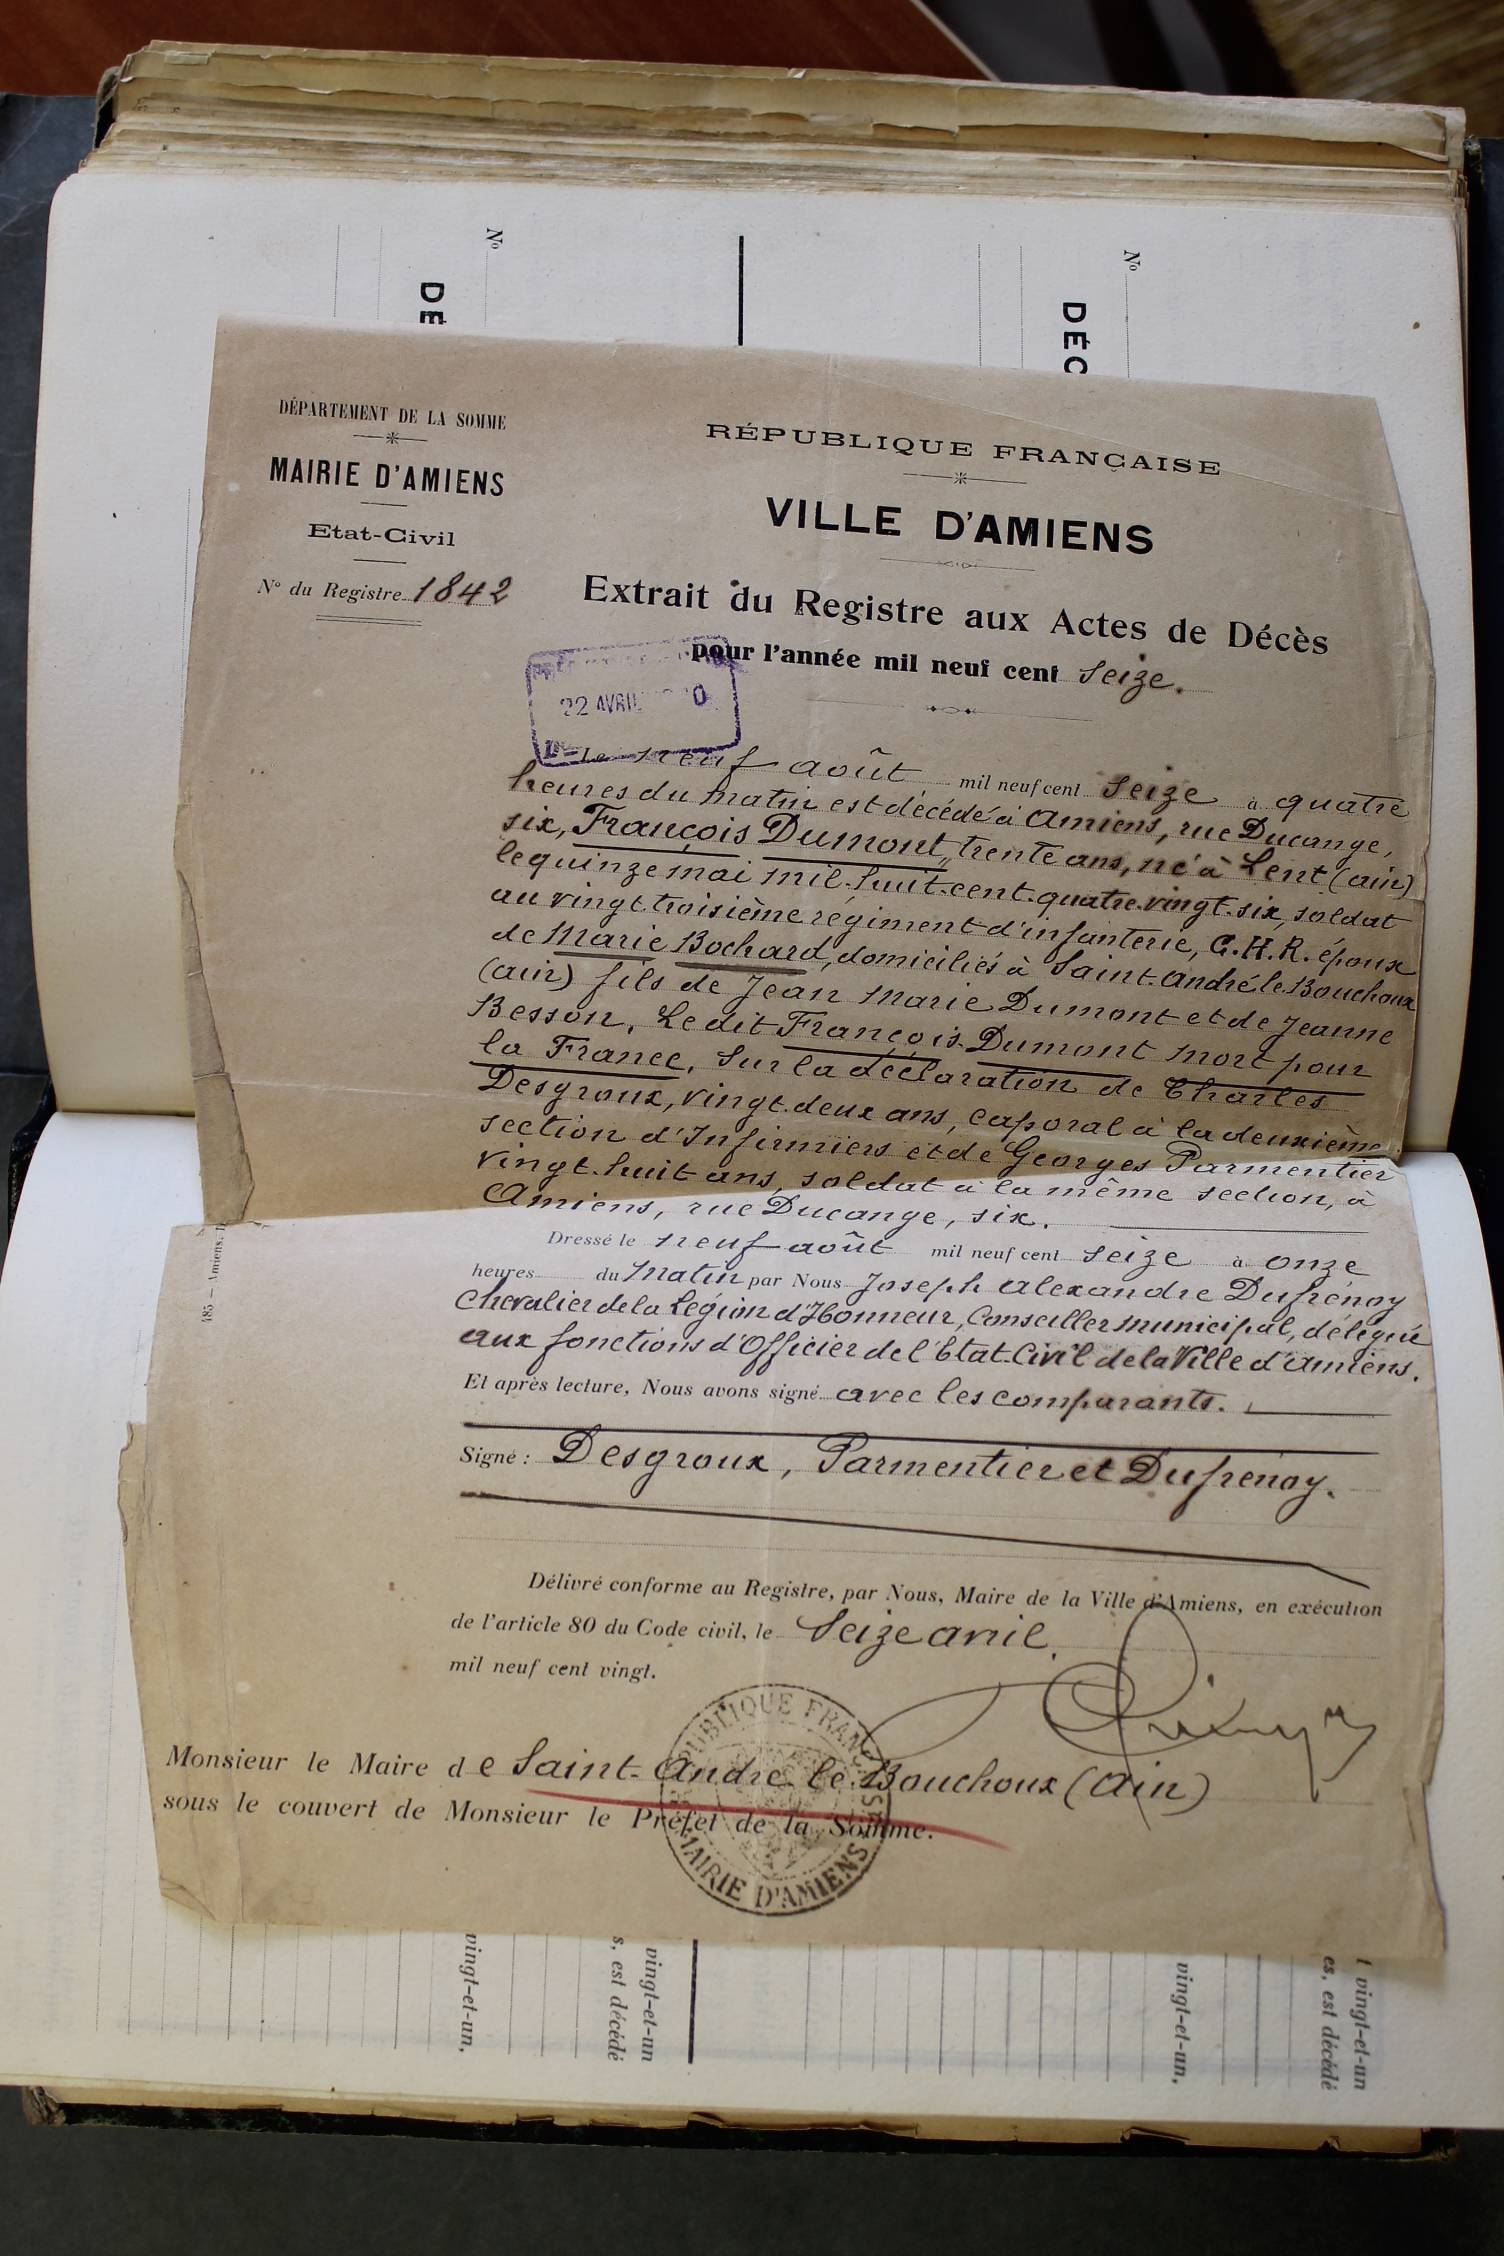 No
DE
No
DÉC
DÉPARTEMENT DE LA SOMME
MAIRIE D'AMIENS
Etat-Civil
N° du Registre 1842
RÉPUBLIQUE FRANÇAISE
VILLE D'AMIENS
Extrait du Registre aux Actes de Décès
pour l'année mil neuf cent seize.
22 AVRIL 0
Le neuf août mil neuf cent seize à quatre
heures du matin est décédé à Amiens, rue Ducange,
six, François Dumont, trente ans, né à Lent (ain)
le quinze mai mil-huit-cent-quatre-vingt-six, soldat
au vingt troisième régiment d'infanterie, C.H.R. époux
de Marie Bochard, domiciliés à Saint-André le Bouchoux
(ain) fils de Jean Marie Dumont et de Jeanne
Besson. Le dit François Dumont mort pour
la France. Sur la déclaration de Charles
Desgroux, vingt-deux ans, caporal à la deuxième
section d'Infirmiers et de Georges Parmentier
vingt-huit ans, soldat à la même section, à
Amiens, rue Ducange, six.
Dressé le neuf août mil neuf cent seize à onze
heures du matin par Nous Joseph Alexandre Dufrénoy
Chevalier de la Légion d'Honneur, Conseiller municipal, délégué
aux fonctions d'Officier de l'Etat-Civil de la Ville d'Amiens.
Et après lecture, Nous avons signé avec les comparants.
Signé : Desgroux, Parmentier et Dufrénoy.
Délivré conforme au Registre, par Nous, Maire de la Ville d'Amiens, en exécution
de l'article 80 du Code civil, le Seize avril
mil neuf cent vingt.
RÉPUBLIQUE FRANÇAISE
MAIRIE D'AMIENS
Monsieur le Maire de Saint-André-le-Bouchoux (Ain)
sous le couvert de Monsieur le Préfet de la Somme.
485 — Amiens.
vingt-et-un,
s, est décédé
vingt-et-un
vingt-et-un,
es, est décédé
t vingt-et-un